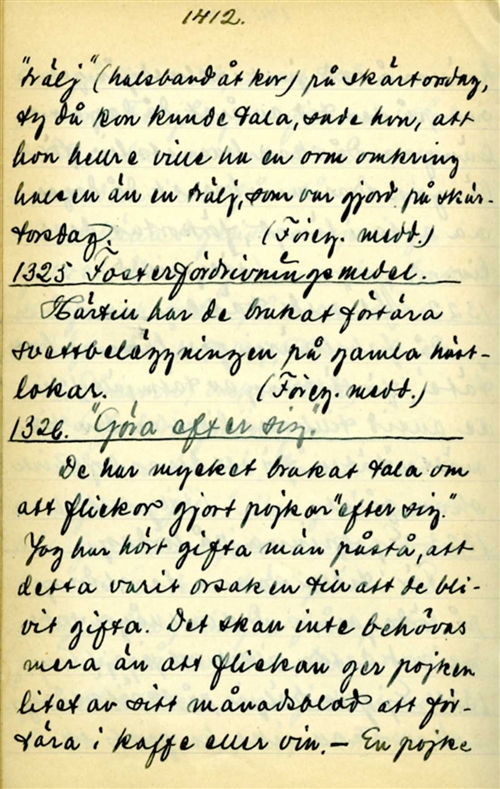 1412.
"trälj" (halsband åt kor) på skärtorsdag,
ty då kon kunde tala, sade hon, att
hon hellre ville ha en orm omkring
halsen än en trälj, som var gjord på skär-
torsdag. (Föreg. medd.)
1325 Fosterfördrivningsmedel.
Härtill har de brukat förtära
svettbeläggningen på gamla häst-
lokar. (Föreg. medd.)
1326. "Göra efter sig."
De har mycket brukat tala om
att flickor gjort pojkar "efter sig."
Jag har hört gifta män påstå, att
detta varit orsaken till att de bli-
vit gifta. Det skall inte behövas
mera än att flickan ger pojken
litet av sitt månadsblod att för-
tära i kaffe eller vin. – En pojke